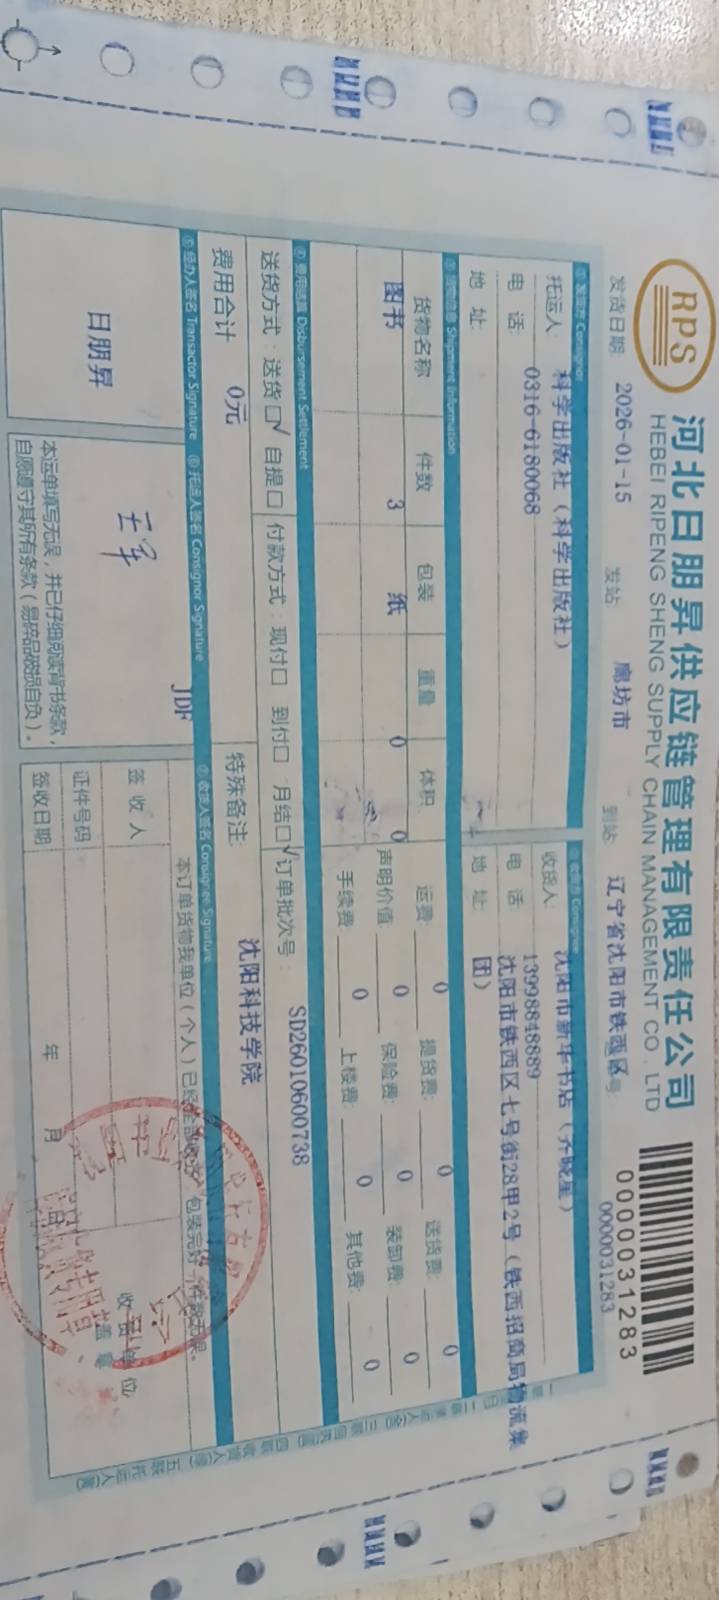 RPS
河北日朋昇供应链管理有限责任公司
HEBEI RIPENG SHENG SUPPLY CHAIN MANAGEMENT CO., LTD
0000031283
0000031283
发货日期: 2026-01-15 发站 廊坊市 到站 辽宁省沈阳市铁西区
① 发货方 Consignor
托运人: 科学出版社（科学出版社）
电 话: 0316-6180068
地 址:
② 收货方 Consignee
收货人: 沈阳市新华书店（齐晓星）
电 话: 13998848889
地 址: 沈阳市铁西区七号街28甲2号（铁西招商局物流集
团）
③ 货物信息 Shipment Information
货物名称 件数 包装 重量 体积
图书 3 纸 0 0
运费: 0 提货费: 0 送货费: 0
声明价值: 0 保险费: 0 装卸费: 0
手续费: 0 上楼费: 0 其他费: 0
④ 费用结算 Disbursement Settlement
送货方式: 送货 □√ 自提 □ 付款方式: 现付□ 到付□ 月结□√ 订单批次号: SD26010600738
费用合计 0元
特殊备注: 沈阳科技学院
⑤ 经办人签名 Transactor Signature ⑥ 托运人签名 Consignor Signature ⑦ 收货人签名 Consignee Signature
日朋昇
JDF
本运单填写无误，并已仔细阅读背书条款，
自愿遵守其所有条款（易碎品破损自负）。
本订单货物我单位（个人）已经全部收妥，包装完好，件数无误。
签 收 人
证件号码
签收日期 年 月 日
收货单位
盖 章